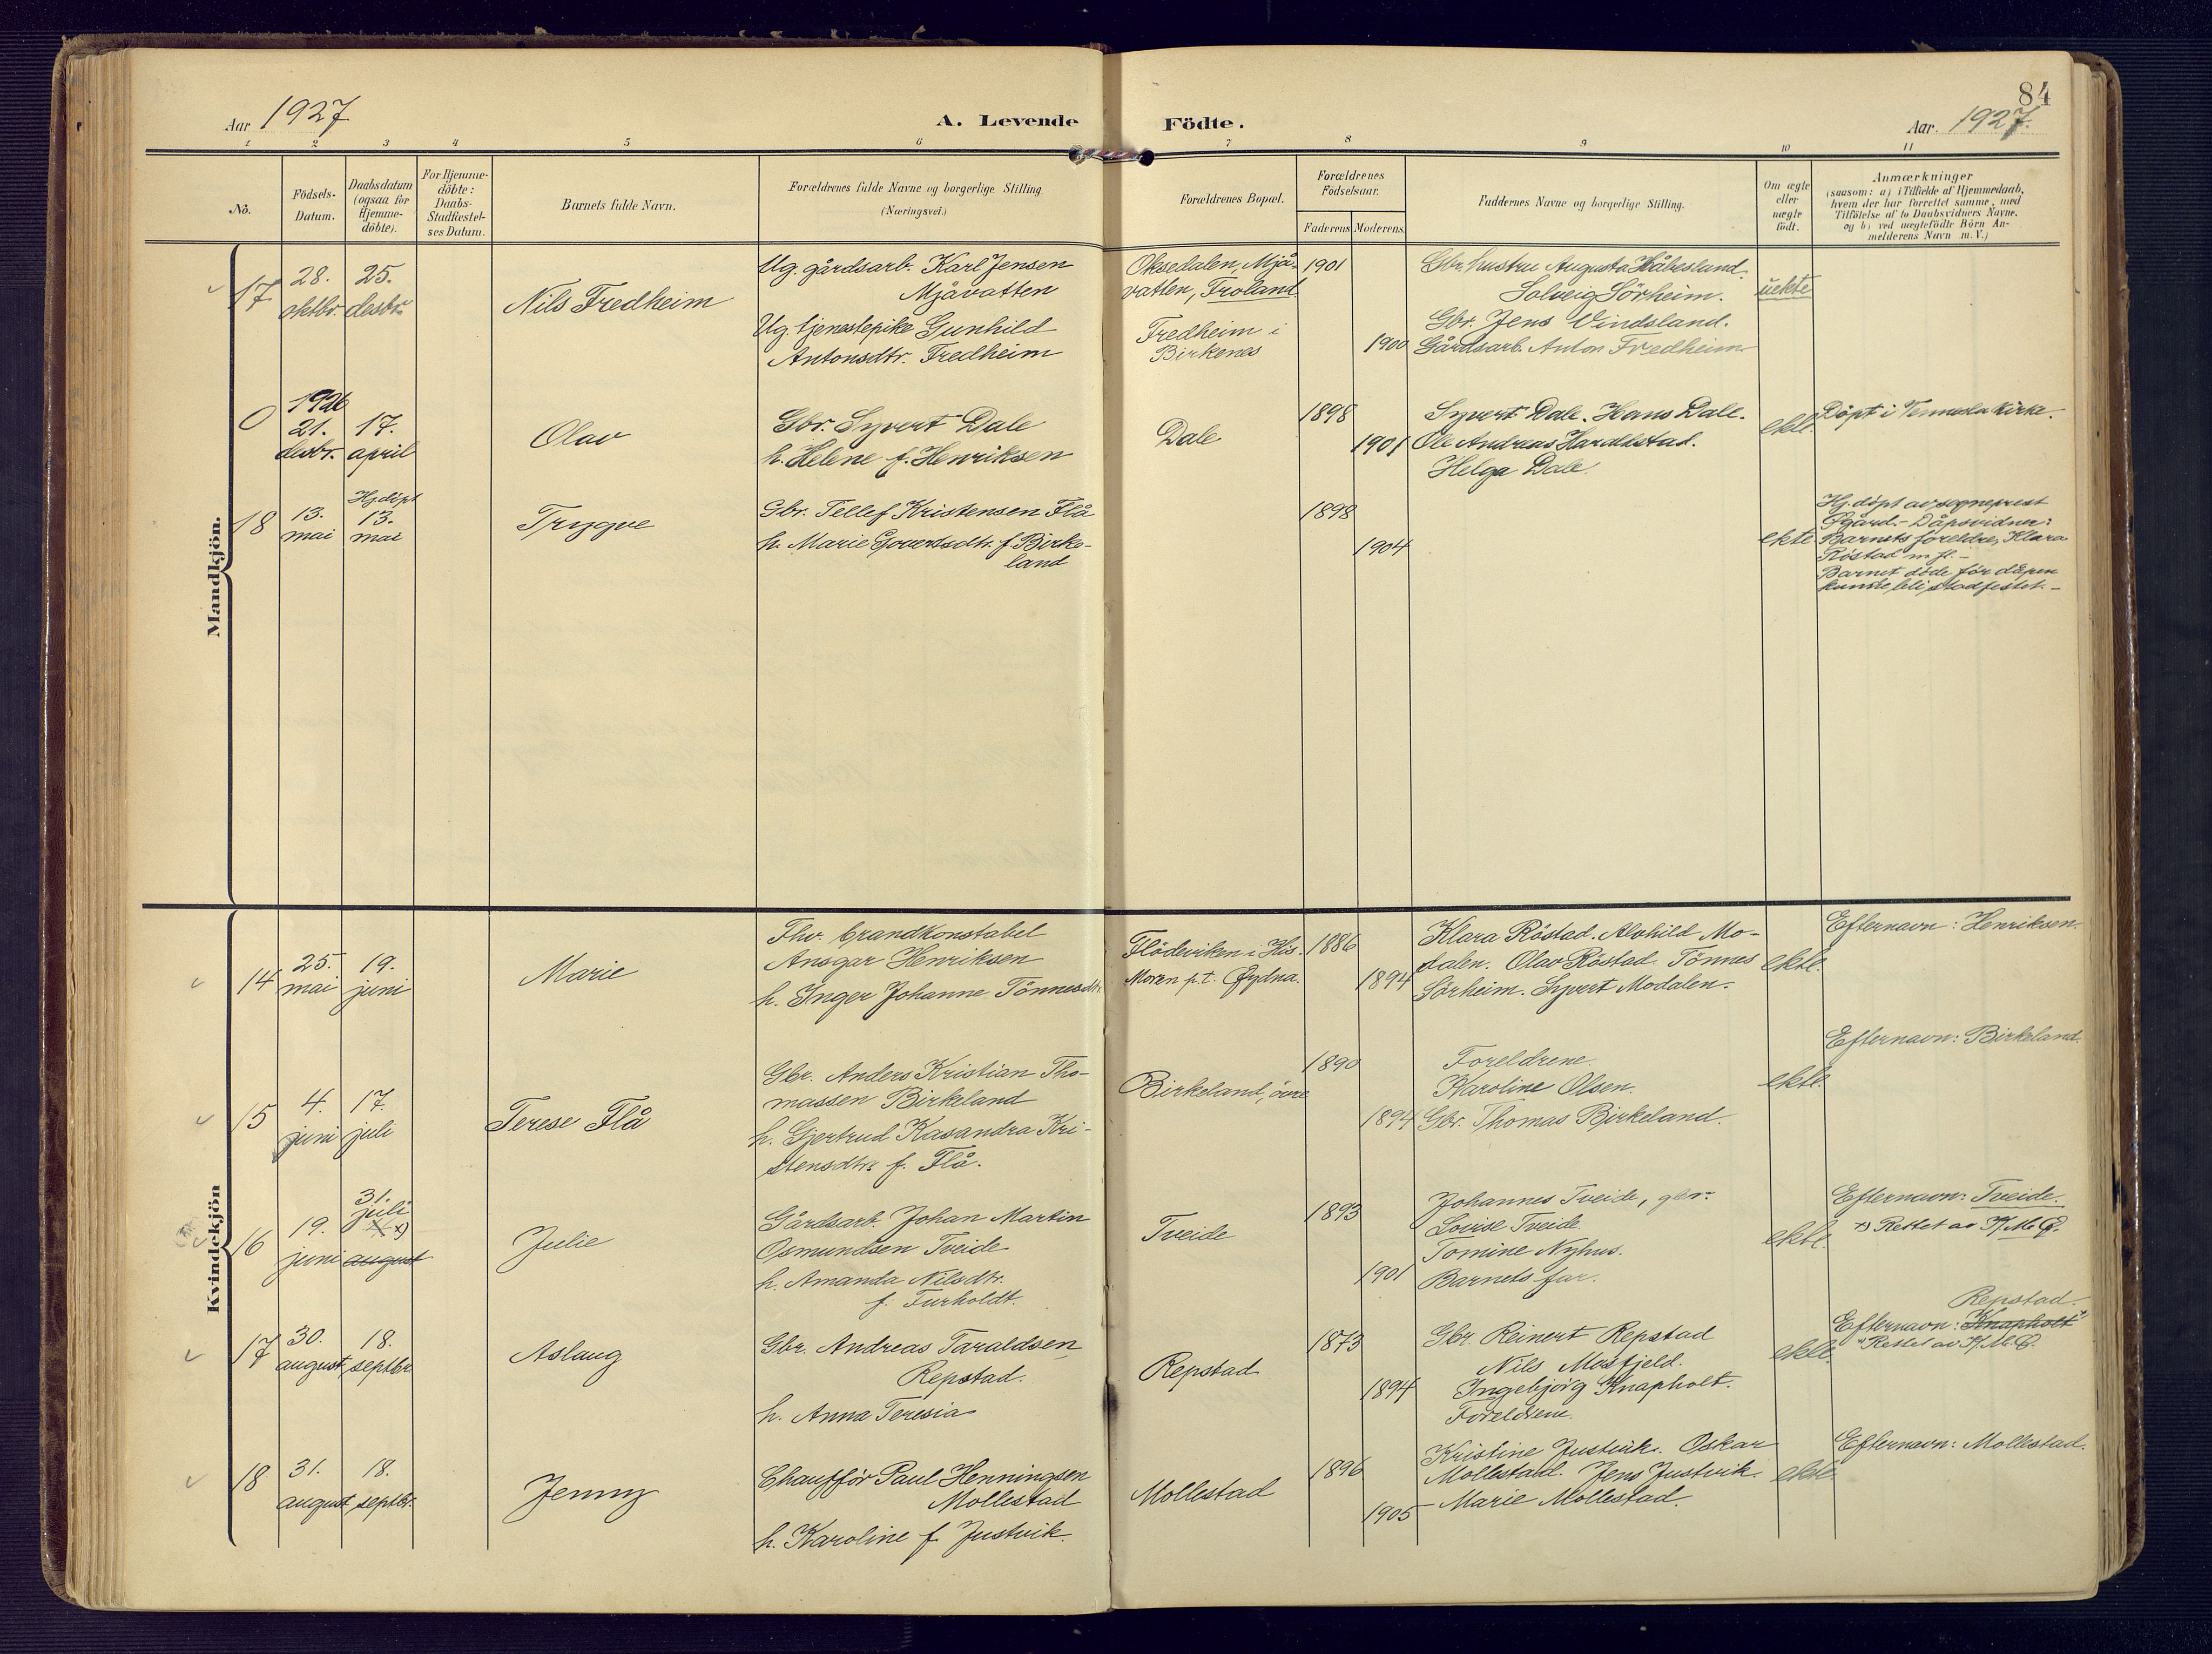 84
Aar 1927
A. Levende
Födte.
Aar. 1927.
1
2
3
4
5
6
7
8
9
10
11
No.
Födsels-
Datum.
Daabsdatum
(ogsaa for
Hjemme-
döbte).
For Hjemme-
döbte:
Daabs-
Stadfæstel-
ses Datum.
Barnets fulde Navn.
Forældrenes fulde Navne og borgerlige Stilling
(Næringsvei.)
Forældrenes Bopæl.
Forældrenes
Födselsaar.
Faderens
Moderens.
Faddernes Navne og borgerlige Stilling.
Om ægte
eller
uægte
födt.
Anmærkninger
(saasom: a) i Tilfælde af Hjemmedaab,
hvem der har forrettet samme, med
Tilföielse af to Daabsvidners Navne.
og b) ved uægtefödte Börn An-
melderens Navn m. V.)
Mandkjön.
17
28.
oktbr.
25.
desbr.
Nils Fredheim
Ug. gårdsarb. Karl Jensen
Mjåvatten
Ug. tjenestepike Gunhild
Antonsdtr. Fredheim
Oksedalen, Mjå-
vatten, Froland
Fredheim i
Birkenes
1901
1900
Gbr. hustru Augusta Håbesland.
Solveig Sörheim.
Gbr. Jens Vindsland.
Gårdsarb. Anton Fredheim
uekte
0
1926
21.
desbr.
17.
april
Olav
Gbr. Syvert Dale
h. Helene f. Henriksen
Dale
1898
1901
Syvert Dale. Hans Dale.
Ole Andreas
Helga Dale.
ekte.
Döpt i Vennesla Kirke.
18
13.
mai
Hj. döpt
13.
mai
Trygve
Gbr. Tellef Kristensen Flå
h. Marie Govertsdtr. f. Birke-
land
1898
1904
ekte
Hj. döpt av sogneprest
Øgård. - Dåpsvidner:
Barnets foreldre, Klara
Röstad m. fl. -
Barnet döde för dåpen
kunde bli stadfestet. -
Kvindekjön
14
25.
mai
19.
juni
Marie
Fhv. brandkonstabel
Ansgar Henriksen
h. Inger Johanne Tönnesdtr.
Flödeviken i His.
Moren p.t. Øydna.
1886
1894
Klara Röstad. Alvhild Mo-
dalen. Olav Röstad. Tönnes
Sörheim. Syvert Modalen.
ekte.
Efternavn: Henriksen.
15
4.
juni
17.
juli
Terese Flå
Gbr. Anders Kristian Tho-
massen Birkeland
h. Gjertrud Kasandra Kri-
stensdtr. f. Flå.
Birkeland, övre
1890
1894
Foreldrene.
Karoline Olsen.
Gbr. Thomas Birkeland.
ekte.
Efternavn: Birkeland.
16
19.
juni
31.
juli
x)
august
Julie
Gårdsarb. Johan Martin
Osmundsen Tveide
h. Amanda Nilsdtr.
f. Furholdt.
Tveide
1893
1901
Johannes Tveide, gbr.
Lovise Tveide.
Tomine Nyhus.
Barnets far.
ekte.
Efternavn: Tveide.
x) Rettet av
17
30.
august
18.
septbr.
Aslaug
Gbr. Andreas Taraldsen
Repstad.
h. Anna Teresia
Repstad
1873
1894
Gbr. Reinert Repstad
Nils Mosfjeld.
Ingebjörg Knapholt.
Foreldrene.
ekte.
Repstad.
Efternavn: Knapholt
Rettet av
18
31.
august
18.
septbr.
Jenny
Chaufför Paul Henningsen
Mollestad
h. Karoline f. Justvik.
Mollestad
1896
1905
Kristine Justvik. Oskar
Mollestad. Jens Justvik.
Marie Mollestad.
ekte
Efternavn: Mollestad.